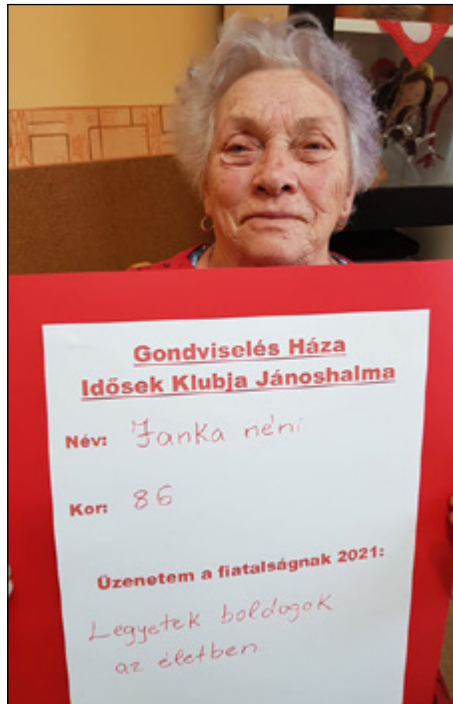 Gondviselés Háza
Idősek Klubja Jánoshalma
Név: Janka néni
Kor: 86
Üzenetem a fiatalságnak 2021:
Legyetek boldogok
az életben.